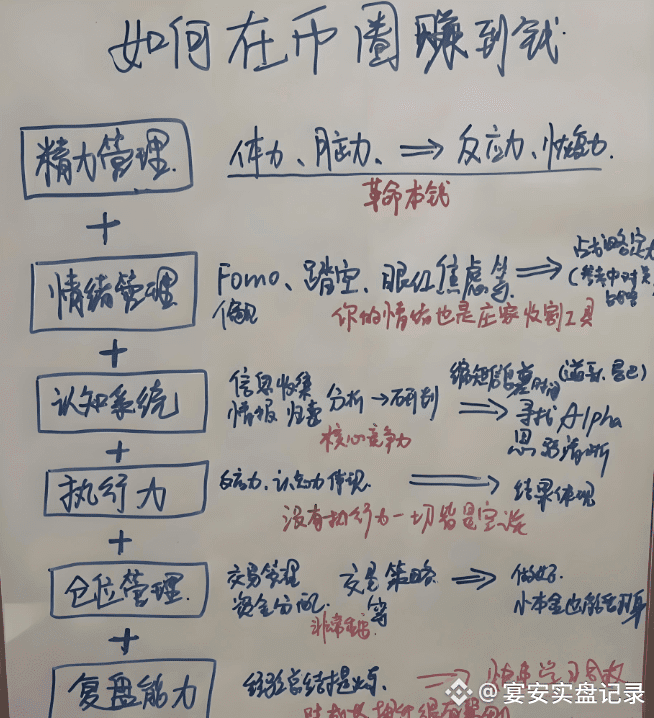 如何在币圈赚到钱
精力管理. 体力、脑力、⇒ 反应力、恢复力.
革命本钱
+
情绪管理 Fomo、踏空、眼红焦虑等 ⇒
偏见 你的情绪也是庄家收割工具
+
认知系统 信息收集 分析→研判 ⇒ 寻找Alpha
情报 归集 核心竞争力 思路清晰
+
执行力 反应力、认知力体现 ⇒ 结果体现
没有执行力一切皆是空谈
+
仓位管理. 交易管理 交易策略 ⇒ 做好.
资金分配. 等 小本金也能翻身
非常重要
+
复盘能力 经验总结提炼. ⇒
宴安实盘记录